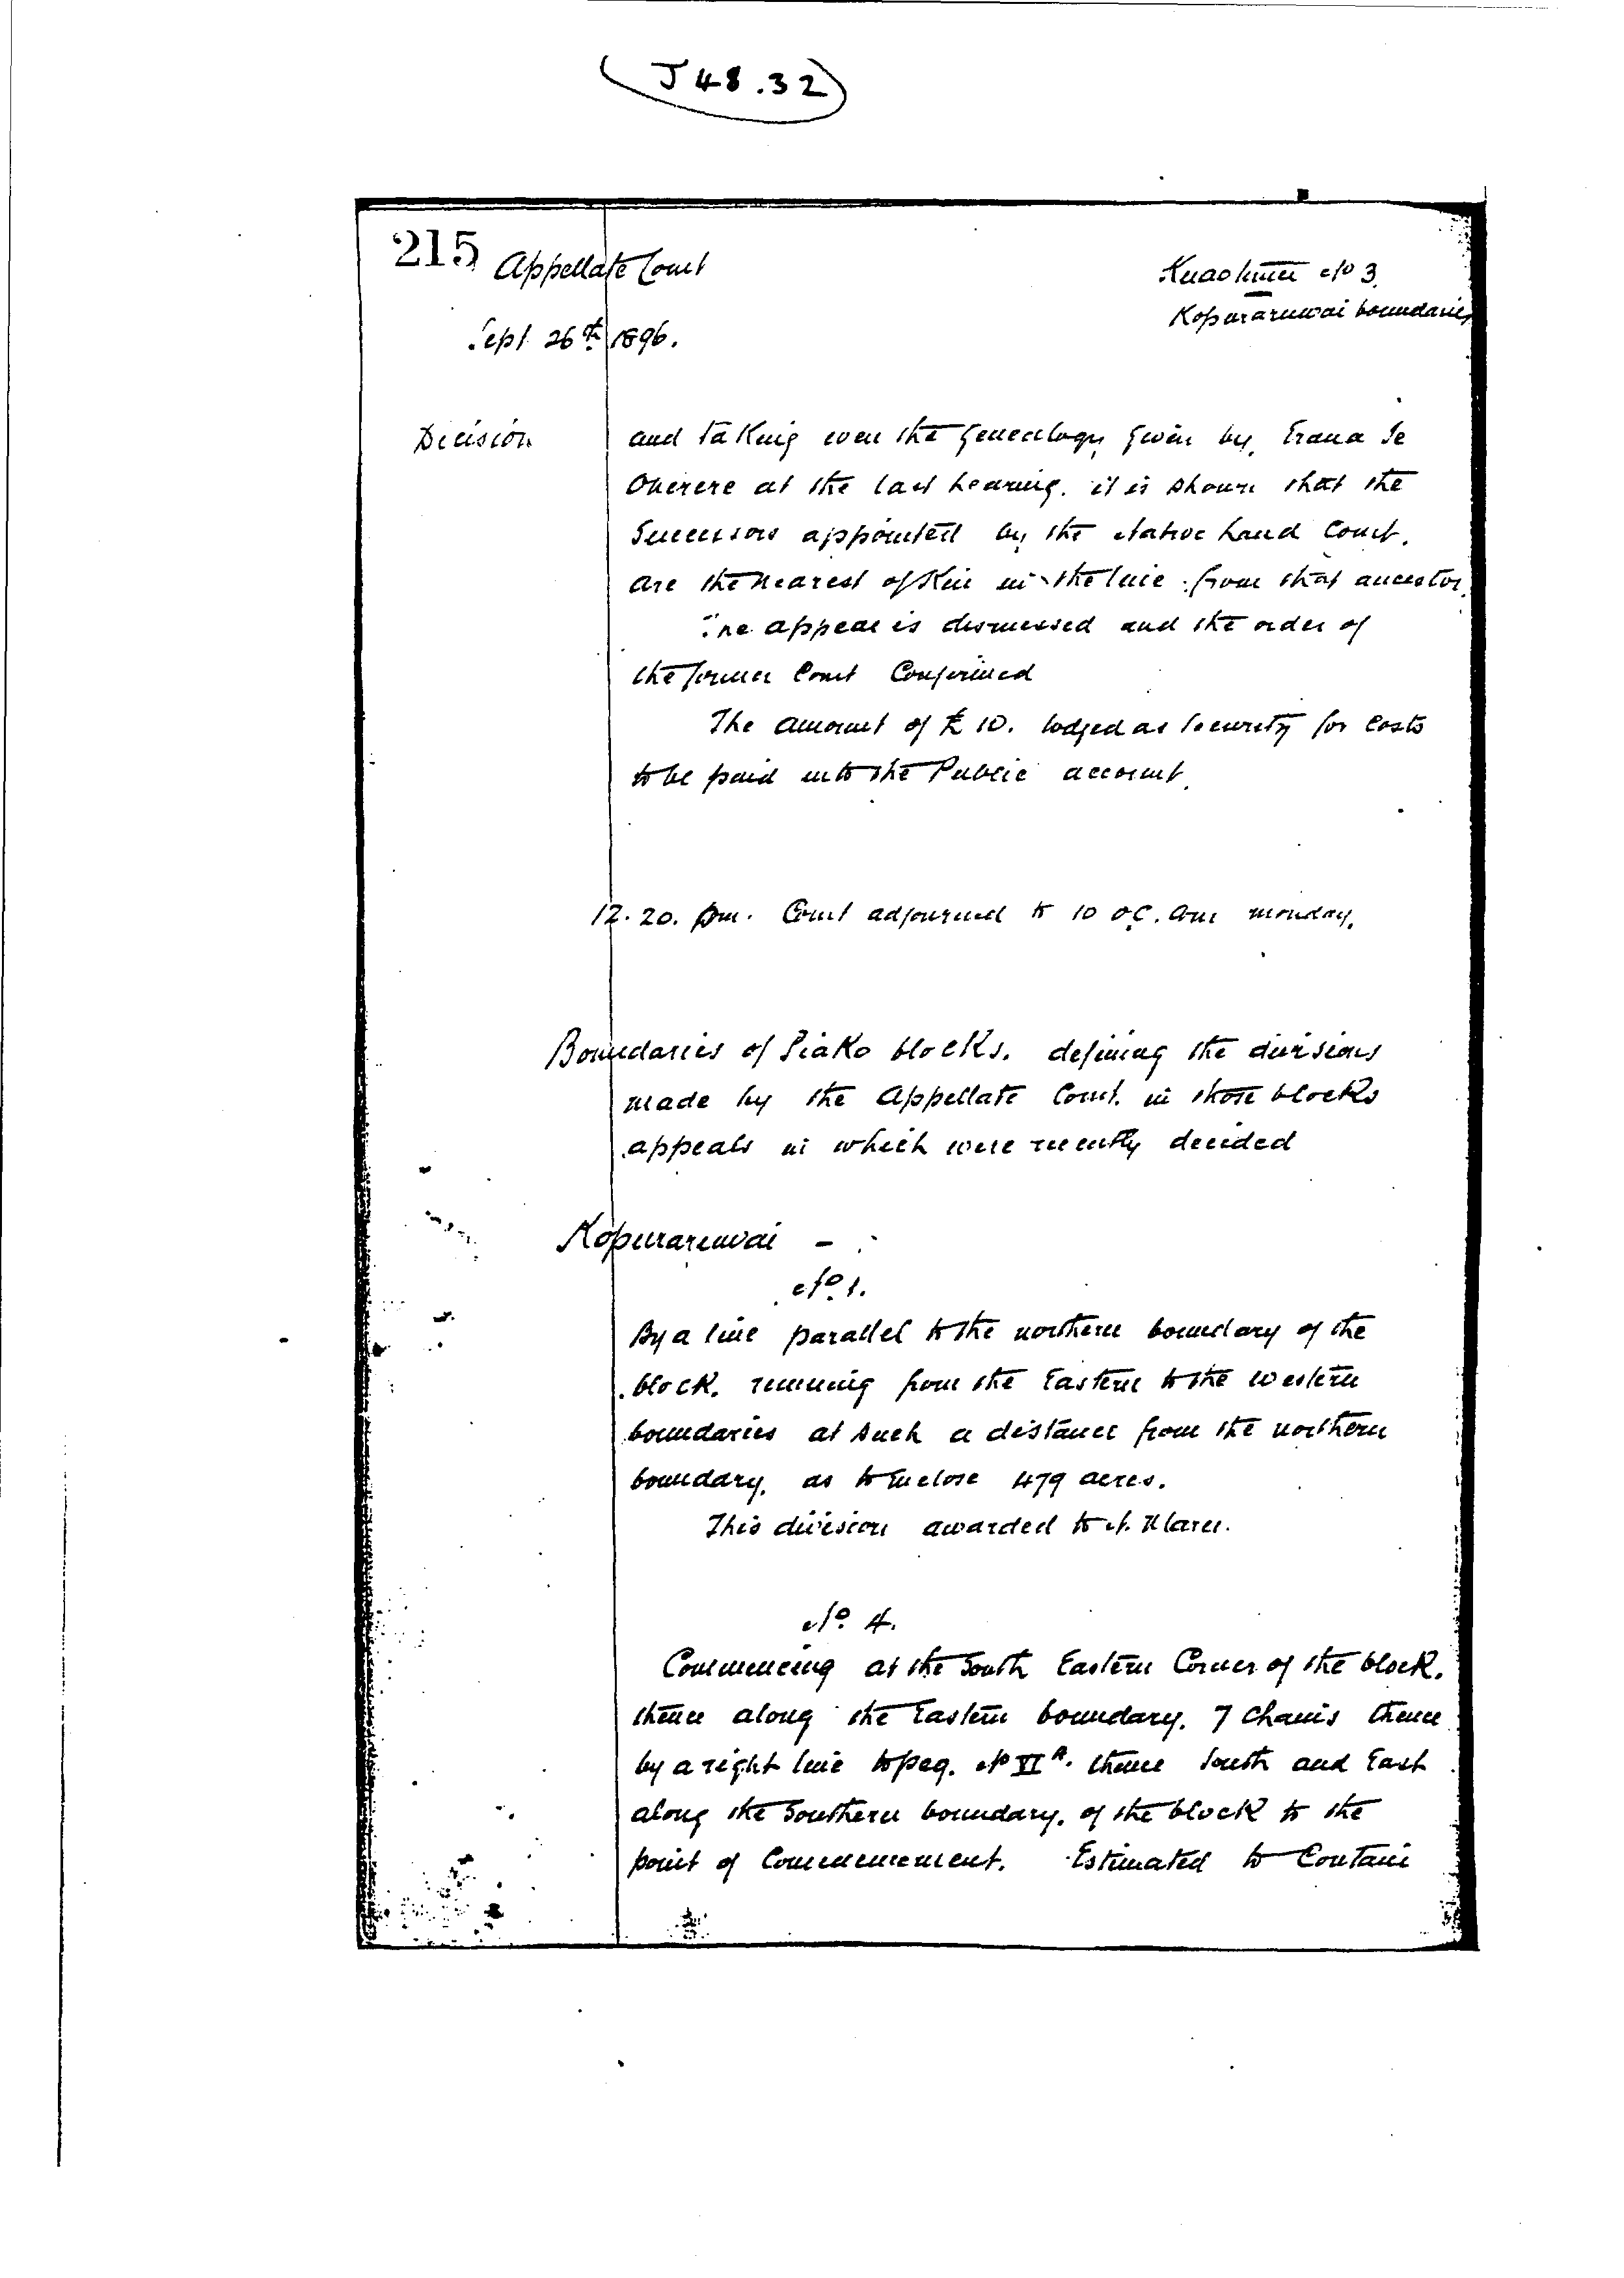 (J 48.32)
215 Appellate Court
Sept 26th 1896.
No 3.
Kopuraruwai boundaries
Decision
and taking even the Genealogy given by Erana Te
at the last hearing. it is shown that the
Successors appointed by the Native Land Court.
are the nearest of Kin in the line from that ancestor.
The appeal is dismissed and the order of
the former Court Confirmed
The amount of £10. lodged as Security for Costs
to be paid into the Public account.
12.20. pm. Court adjourned to 10 o.C. am monday.
Boundaries of Piako blocks. defining the divisions
made by the Appellate Court. in those blocks
appeals in which were recently decided
Kopuraruwai -
No 1.
By a line parallel to the northern boundary of the
block. running from the Eastern to the western
boundaries at such a distance from the northern
boundary. as to Inclose 479 acres.
This division awarded to N.
No. 4.
Commencing at the South Eastern Corner of the block.
thence along the Eastern boundary. 7 Chains thence
by a right line to peg. No VIA. thence South and East
along the Southern boundary. of the block to the
point of Commencement. Estimated to Contain